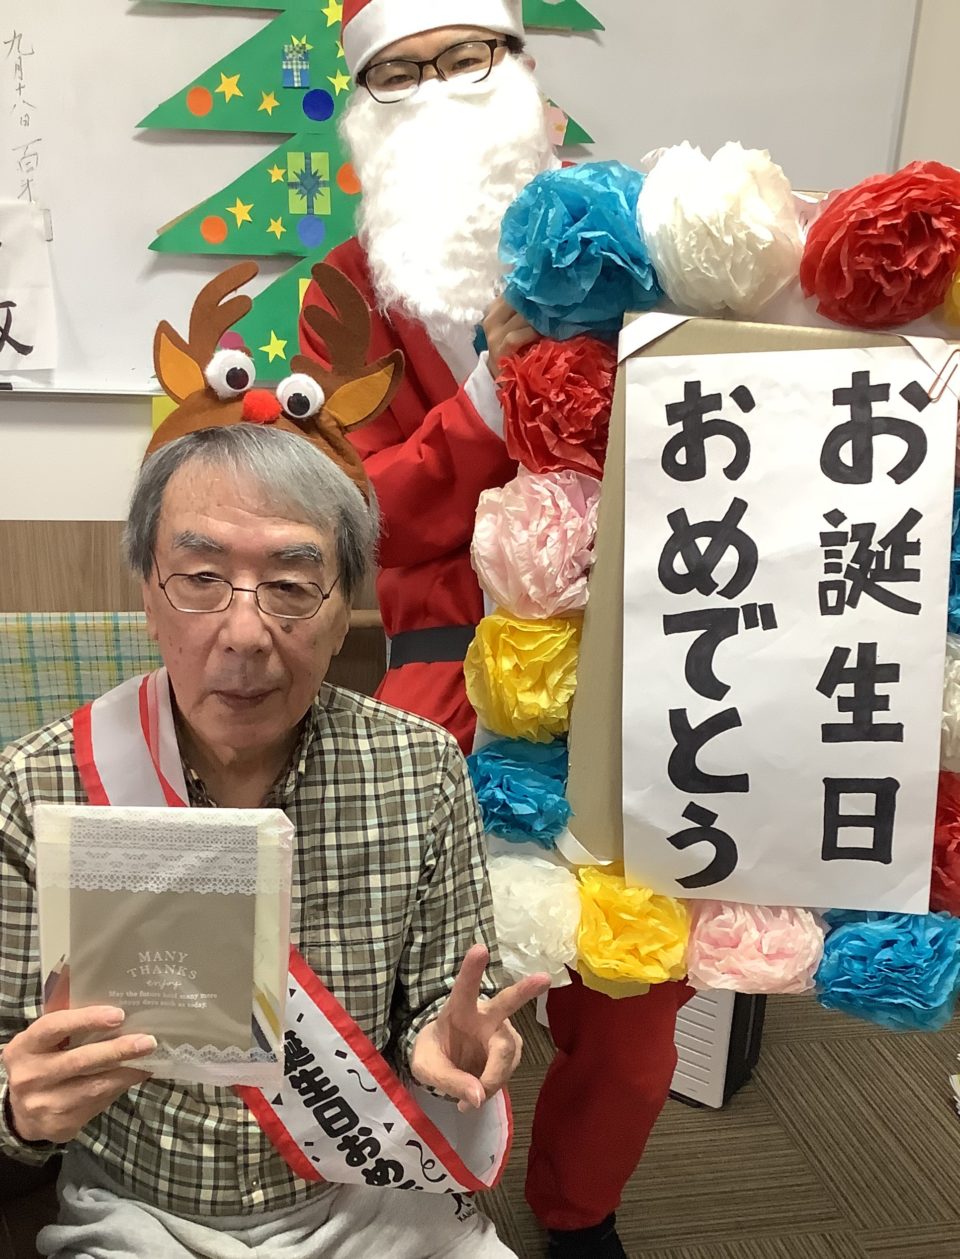 九月十八日 百米
文
お誕生日
おめでとう
MANY
THANKS
enjoy
May the future hold many more
happy days such as today.
誕生日おめ